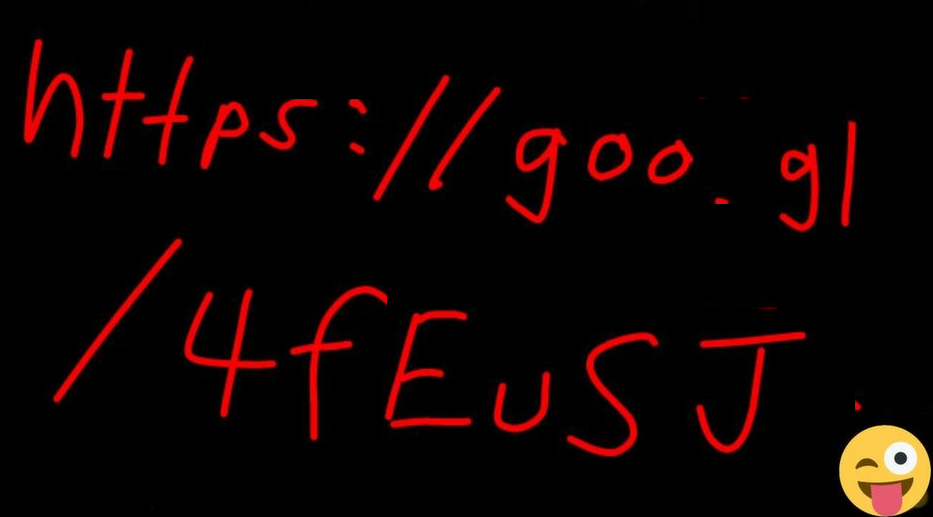 https://goo.gl
/4fEuSJ